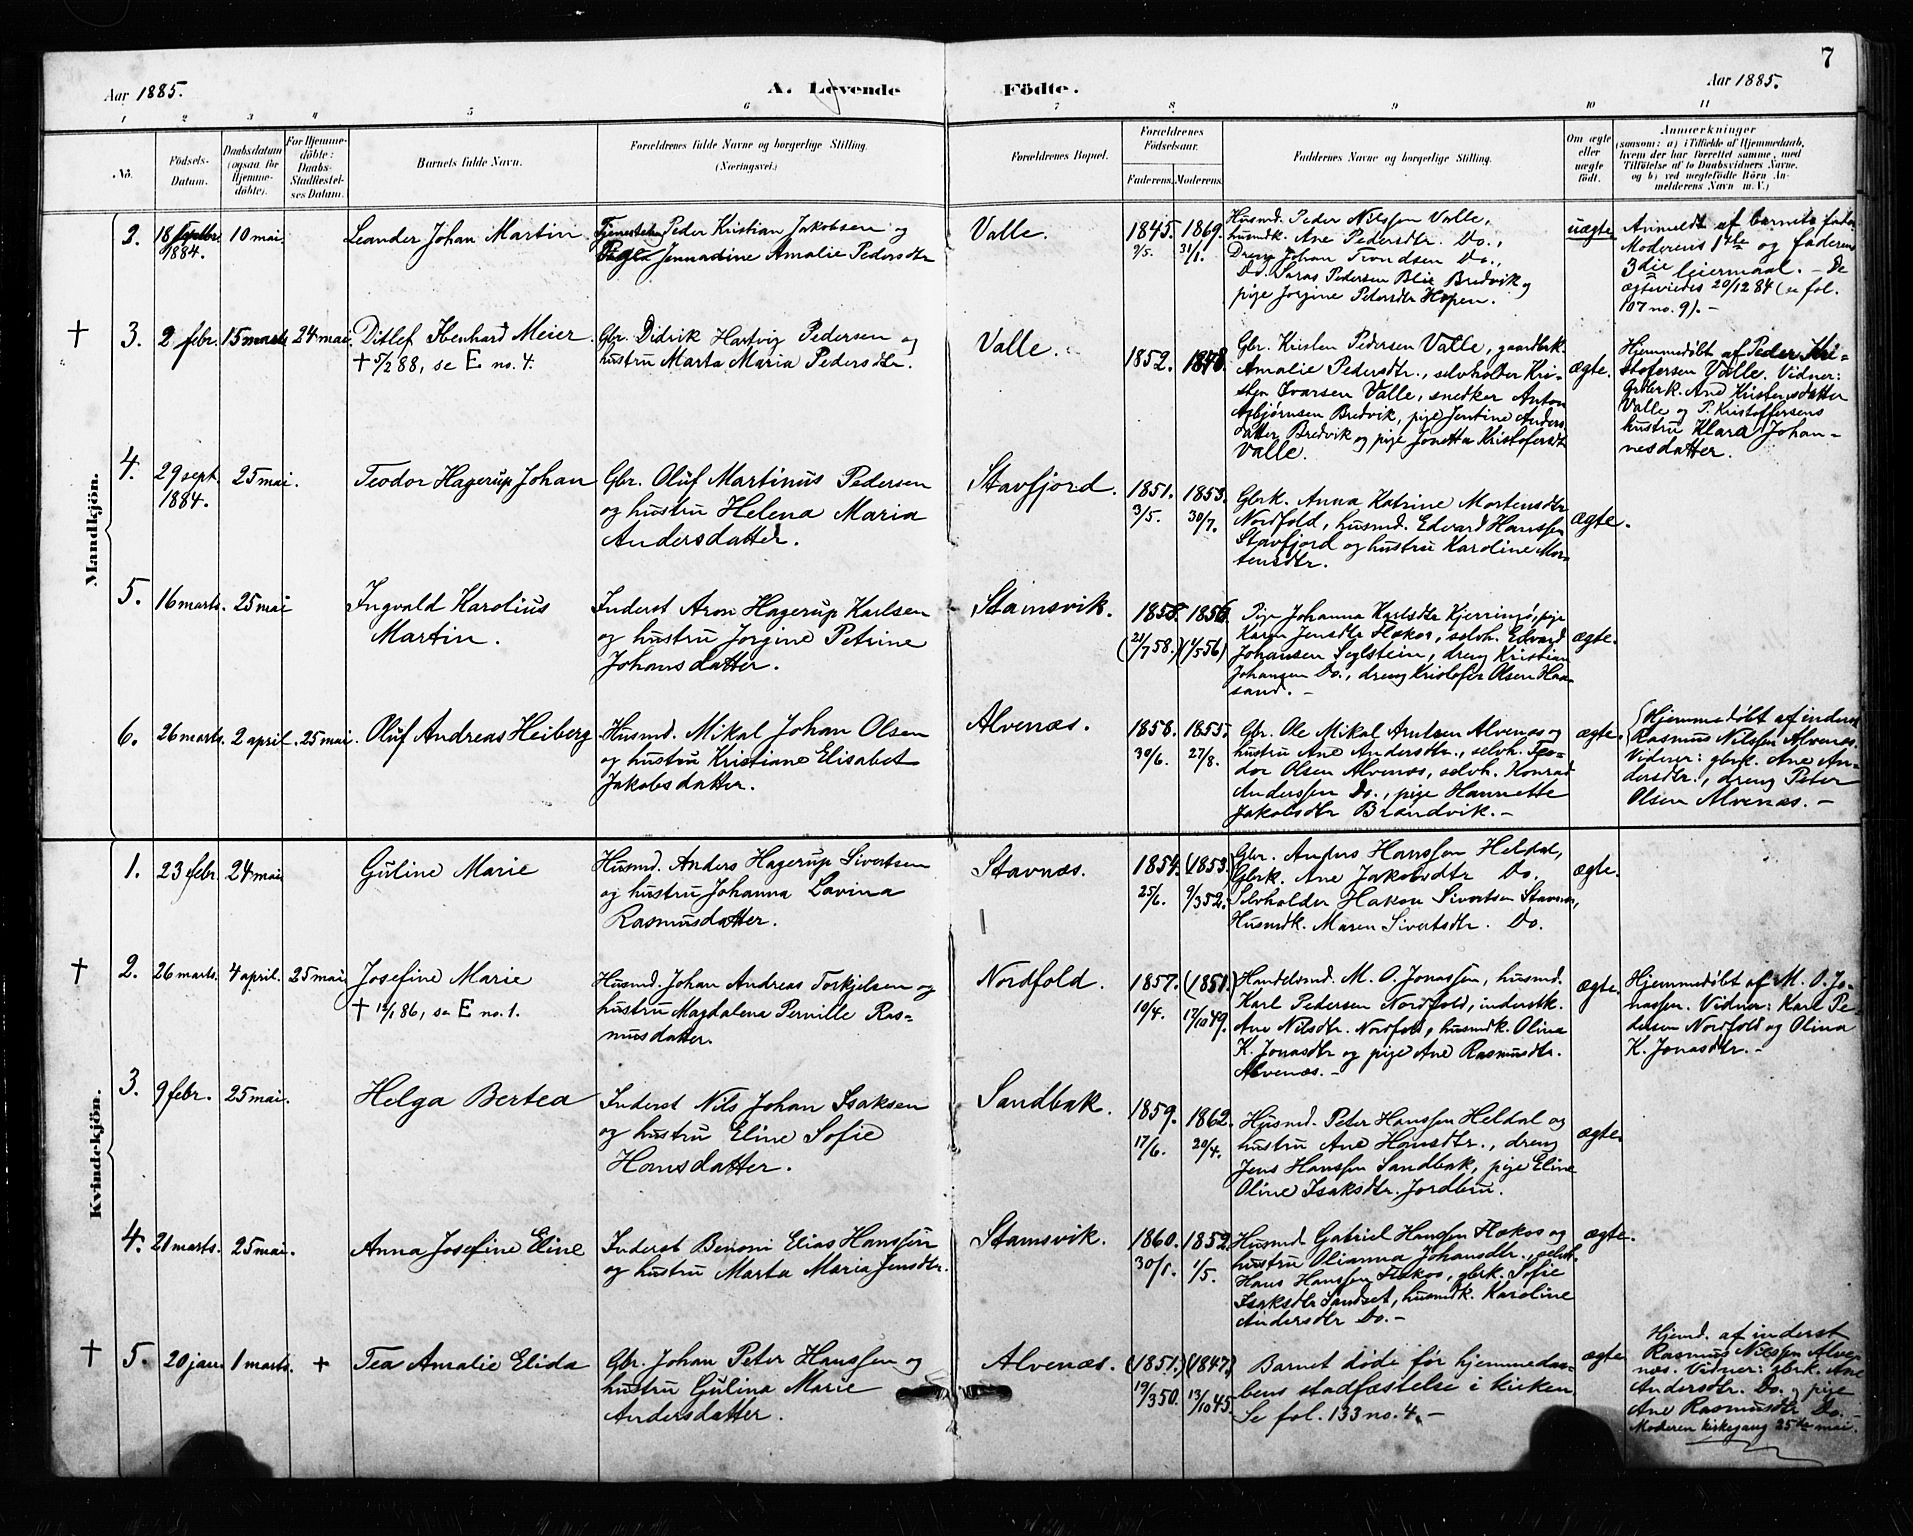 7
Aar 1885.
A. Levende
Födte.
Aar 1885.
1 2 3 4 5 6 7 8 9 10 11
No.
Födsels-
Datum.
Daabsdatum
(ogsaa for
Hjemme-
döbte).
For Hjemme-
döbte:
Daabs-
Stadfæstel-
ses Datum.
Barnets fulde Navn.
Forældrenes fulde Navne og borgerlige Stilling.
(Næringsvei.)
Forældrenes Bopæl.
Forældrenes
Födselsaar.
Faderens. Moderens.
Faddernes Navne og borgerlige Stilling.
Om ægte
eller
uægte
født.
Anmærkninger
(saasom: a) i Tilfælde af Hjemmedaab,
hvem der har forrettet samme, med
Tilföielse af to Daabsvidners Navne,
og b) ved uægtefödte Börn An-
melderens Navn m. V.)
Mandkjön.
2.
18
1884.
10 mai.
Leander Johan Martin
Peder Kristian Jakobsen og
Pige Jennadine Amalie Pedersdtr
Valle.
1845.
2/5.
1869.
31/1.
Husmd. Peder Nilssen Valle,
husmdk. Ane Pedersdtr. Do.,
Dreng Johan Trondsen Do.,
Do. Saras Pedersen Blie Bredvik og
pige Jorgine Petersdtr Hopen.
uægte
Anmeldt af barnets fader
Moderens 1ste og faderens
3die leiermaal. - De
ægteviedes 20/12 84 (se fol.
107 no. 9). -
†
3.
2 febr.
15 marts
24 mai.
Ditlef Ibenhard Meier
† 5/2 88, se E no. 4.
Gbr. Didrik Hartvig Pedersen og
hustru Marta Maria Pedersdtr.
Valle.
1852.
1848.
Gbr. Kristen Pedersen Valle, gaardbrk.
Amalie Pedersdtr., selvholder Kri-
sten Ivarsen Valle, snedker Anton
Asbjørnsen Bredvik, pige Jentine Anders
datter Bredvik og pige Jonetta Kristofersdtr
Valle.
ægte.
Hjemmedøbt af Peder Kri-
stofersen Valle. Vidner:
Gbrk. Ane Kristensdatter
Valle og P. Kristoffersens
hustru Klara Johan-
nesdatter.
4.
29 sept.
1884.
25 mai.
Teodor Hagerup Johan
Gbr. Oluf Martinus Pedersen
og hustru Helena Maria
Andersdatter.
Stavfjord.
1851.
3/5.
1853.
30/7.
Gbrk. Anna Katrine Mortensdtr
Nordfold, husmd. Edvard Hanssen
Stavfjord og hustru Karoline Mor-
tensdtr.
ægte.
5.
16 marts.
25 mai
Ingvald Karolius
Martin.
Inderst Aron Hagerup Karlsen
og hustru Jorgine Petrine
Johansdatter.
Stamsvik.
1858.
(21/7 58.)
1856.
(1/5 56)
Pige Johanna Karlsdtr Kjerringö, pige
Karen Jensdtr Flakos, selvh. Edvard
Johansen Seglstein, dreng Kristian
Johansen Do., dreng Kristofer Olsen Haa-
sand. -
ægte.
6.
26 marts.
2 april.
25 mai.
Oluf Andreas Heiberg
Husmd. Mikal Johan Olsen
og hustru Kristiane Elisabet
Jakobsdatter.
Alvenæs.
1858.
30/6.
1855.
27/8.
Gbr. Ole Mikal Arntsen Alvenæs og
hustru Ane Andersdtr., selvh. Teo-
dor Olsen Alvenæs, selvh. Konrad
Anderssen Do., pige Hannette
Jakobsdtr Brandvik. -
ægte.
Hjemmedøbt af inderst
Rasmus Nilssen Alvenæs.
Vidner: gbrk. Ane An-
dersdtr., dreng Peter
Olsen Alvenæs. -
Kvindekjön.
1.
23 febr.
24 mai
Guline Marie
Husmd. Anders Hagerup Sivertsen
og hustru Johanna Lavina
Rasmusdatter.
Stavnæs.
1854.
25/6.
(1853.)
9/3 52.
Gbr. Anders Hanssen Heldal,
Gbrk. Ane Jakobsdtr Do.
Selvholder Hakon Sivertsen Stavnæs,
Husmdk. Maren Sivertsdtr. Do.
ægte.
†
2.
26 marts.
4 april.
25 mai
Josefine Marie
† 14/1 86, se E no. 1.
Husmd. Johan Andreas Torkjelsen og
hustru Magdalena Pernille Ras-
musdatter.
Nordfold.
1857.
10/4.
(1851.)
17/10 49.
Handelsmd. M. O. Jonassen, husmd.
Karl Pedersen Nordfold, inderstk.
Ane Nilsdtr. Nordfold, husmdk. Olina
K. Jonasdtr og pige Ane Rasmusdtr.
Alvenæs. -
ægte.
Hjemmedøbt af M. O. Jo-
nassen. Vidner: Karl Pe-
dersen Nordfold og Olina
K. Jonasdtr. -
3.
9 febr.
25 mai.
Helga Bertea
Inderst Nils Johan Isaksen
og hustru Eline Sofie
Hansdatter.
Sandbak.
1859.
17/6.
1862.
20/4.
Husmd. Peter Hanssen Heldal og
hustru Ane Hansdtr., dreng
Jens Hanssen Sandbak, pige Eline
Oline Isaksdtr. Jordbru.
ægte.
4.
21 marts.
25 mai.
Anna Josefine Eline
Inderst Benoni Elias Hanssen
og hustru Marta Maria Jensdtr.
Stamsvik.
1860.
30/1.
1852.
1/5.
Husmd. Gabriel Hanssen Flakos og
hustru Olianna Johansdtr., selvh.
Hans Hanssen Flakos, gbrk. Sofie
Isaksdtr Sandset, husmdk. Karoline
Andersdtr Do. -
ægte.
†
5.
20 jan.
1 marts.
+
Tea Amalie Elida
Gbr. Johan Peter Hanssen og
hustru Gulina Marie
Andersdatter.
Alvenæs.
(1851.)
19/3 50.
(1847.)
13/10 45.
Barnet døde før hjemmedaa-
bens stadfæstelse i kirken.
Se fol. 133 no. 4. -
ægte
Hjemd. af inderst
Rasmus Nilssen Alve-
næs. Vidner: gbrk. Ane
Andersdtr. Do. og pige
Ane Rasmusdtr Do. -
Moderen kirkegang 25de mai.